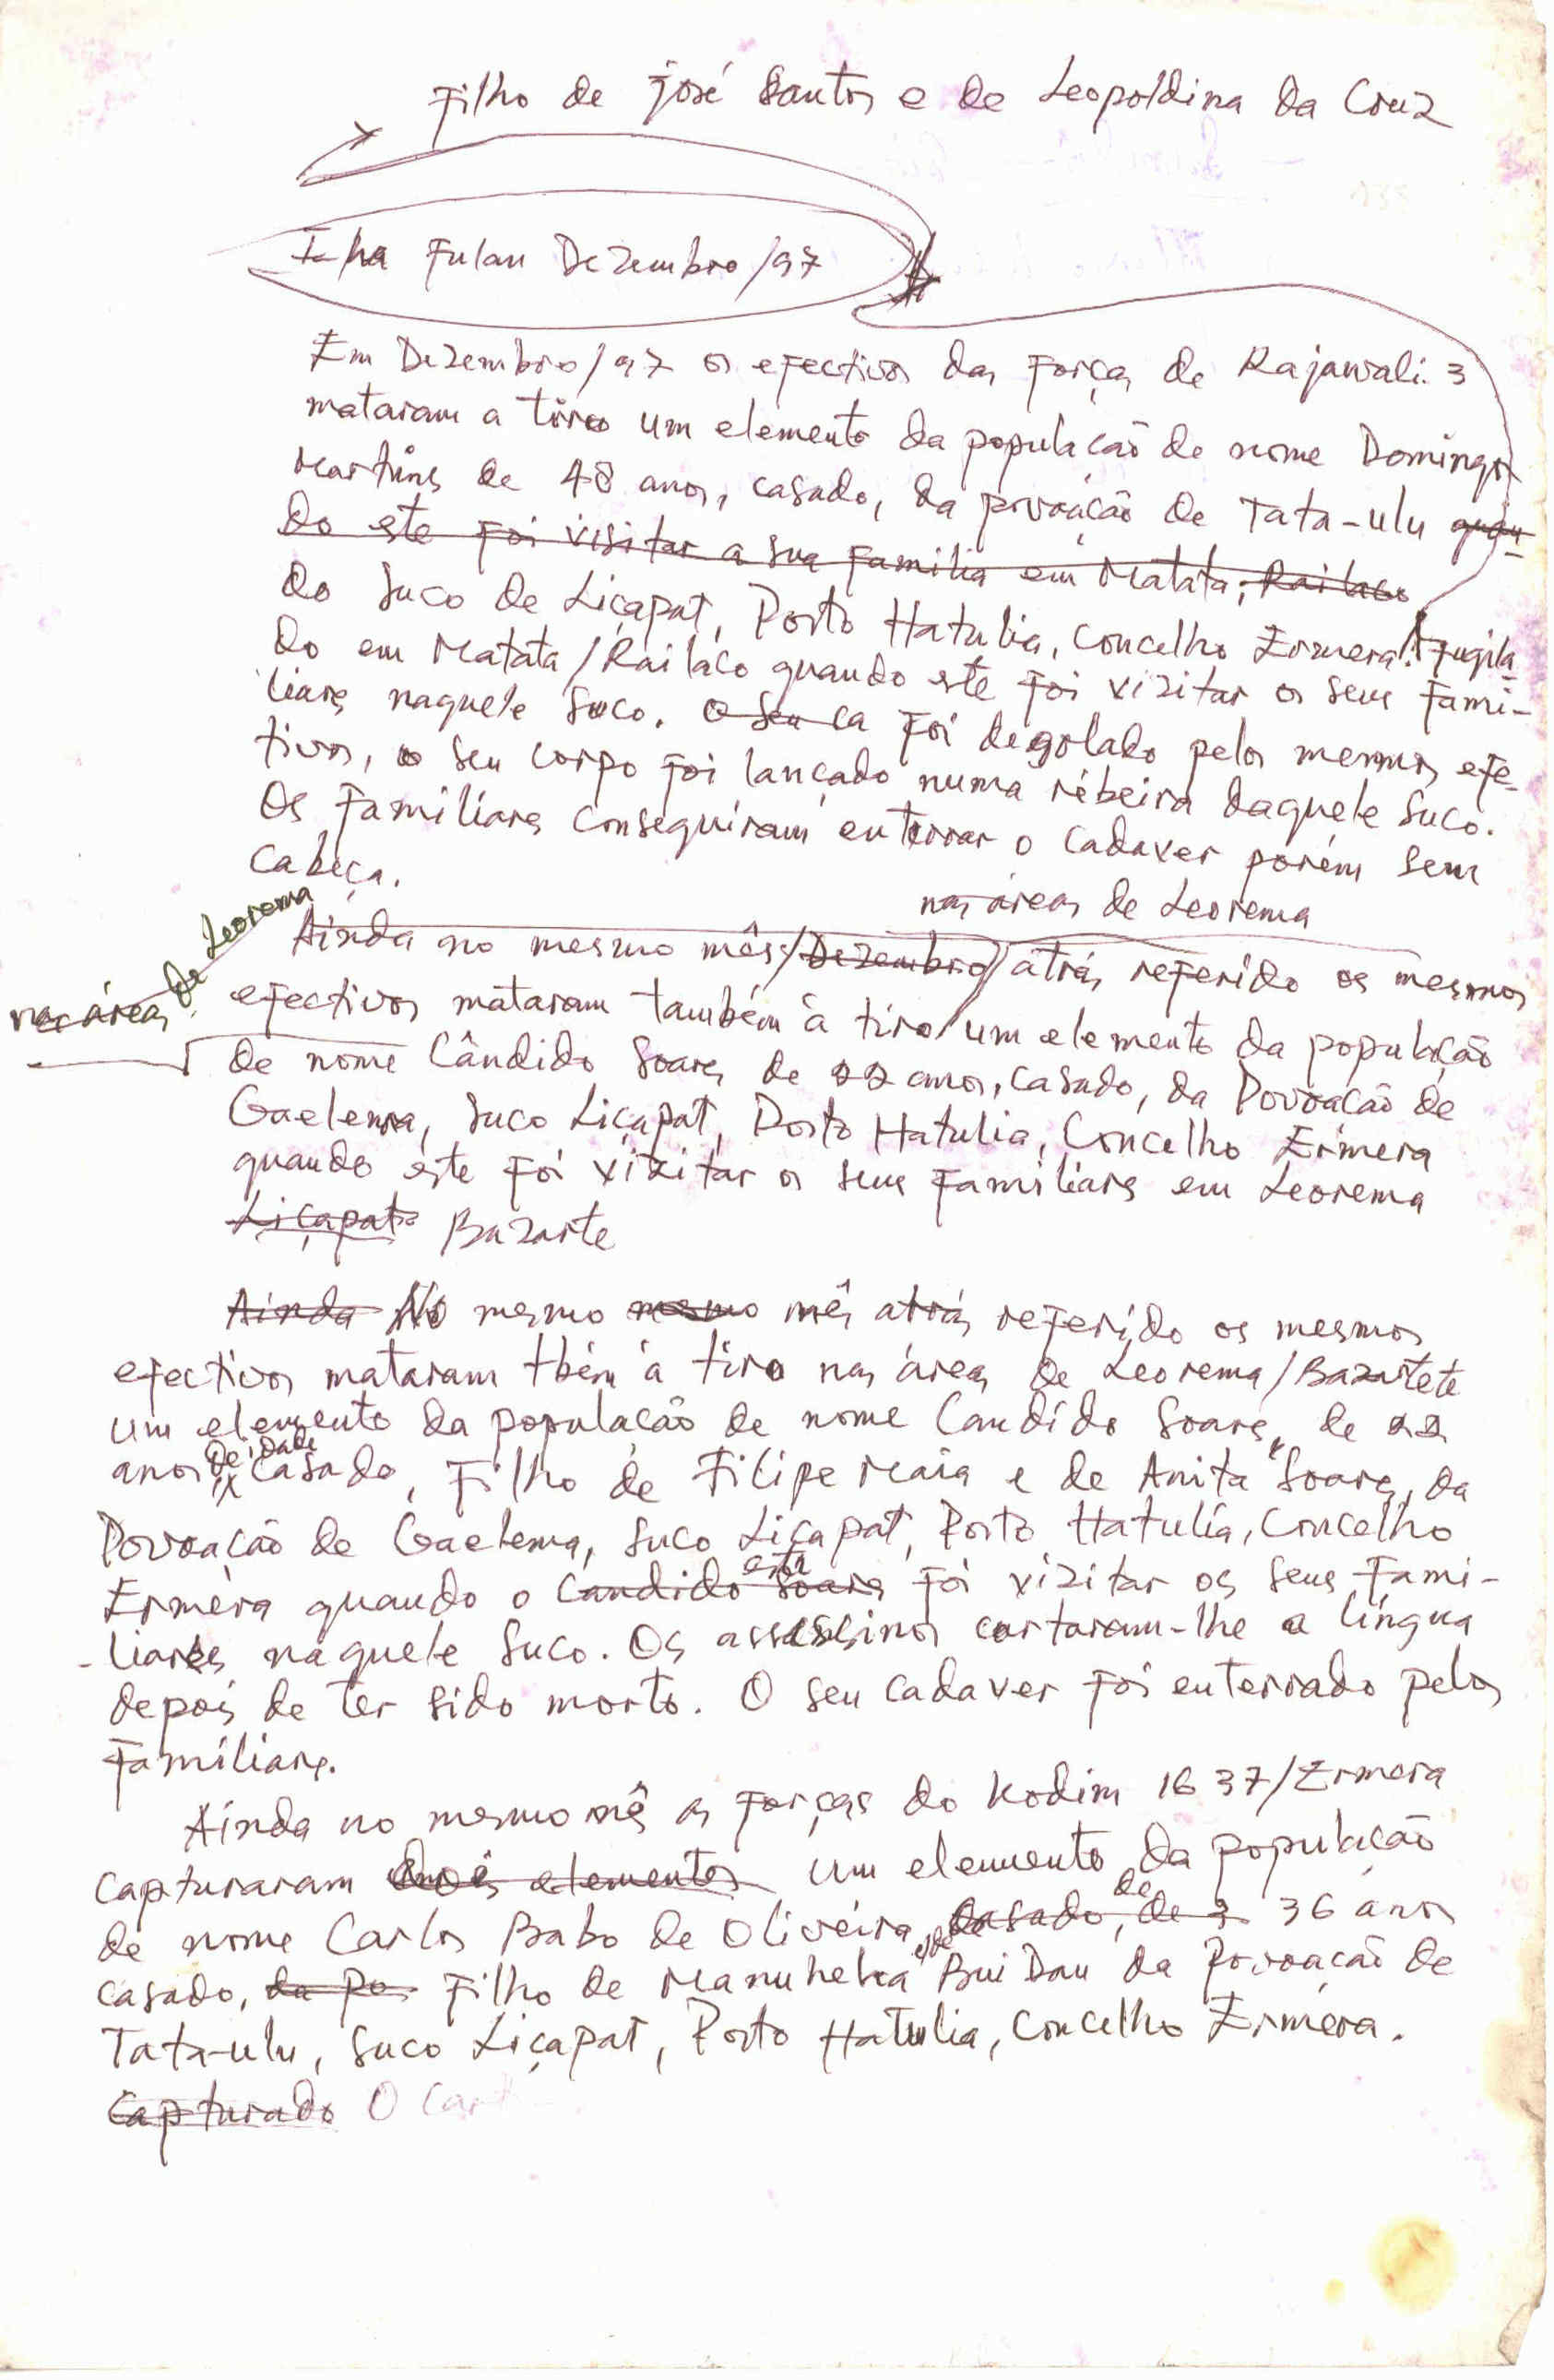 Filho de José Santos e de Leopoldina da Cruz
Iha Fulan Dezembro/97
Em Dezembro/97 os efectivos das forças de Rajawali 3
mataram a tiro um elemento da população de nome Domingos
Martins de 48 anos, casado, da povoação de Tata-ulu quan-
do este foi visitar a sua família em Matata, Railaco
do suco de Liçapat, Posto Hatulia, Concelho Ermera. Fuzila
do em Matata/Railaco quando este foi vizitar os seus fami-
liares naquele suco. O seu ca Foi degolado pelos mesmos efe-
tivos, o seu corpo foi lançado numa rebeira daquele suco.
Os familiares conseguiram enterrar o cadaver porém sem
cabeça.
nas áreas de Leorema
nas áreas de Leorema
Ainda no mesmo mês/Dezembro/atrás referido os mesmos
efectivos mataram também à tiro/um elemento da população
de nome Cândido Soares de 22 anos, casado, da Povoação de
Gaelema, suco Liçapat, Posto Hatulia, Concelho Ermera
quando este foi vizitar os seus familiares em Leorema
Liçapat Bazarte
Ainda No mesmo mesmo mês atrás referido os mesmos
efectivos mataram tbém à tiro nas áreas de Leorema/Bazartete
um elemento da população de nome Candido Soares, de 22
anos de idade casado, filho de Filipe Maia e de Anita Soares, da
Povoação de Gaelema, suco Liçapat, Posto Hatulia, Concelho
Ermera quando o Candido Soares este foi vizitar os seus fami-
-liares naquele suco. Os assassinos cortaram-lhe a língua
depois de ter sido morto. O seu cadaver foi enterrado pelos
familiares.
Ainda no mesmo mês as forças do Kodim 1637/Ermera
capturaram dois elementos um elemento da população
de nome Carlos Babo de Oliveira, casado, de 3 de 36 anos
casado, da Po. filho de Manuheka e de Bui Dau da Povoação de
Tata-ulu, suco Liçapat, Posto Hatulia, Concelho Ermera.
Capturado O Carl